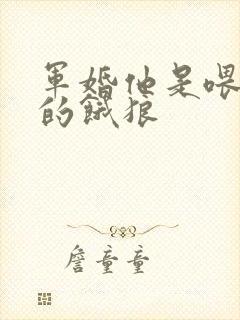 軍婚他是喂
的餓狼
詹童童